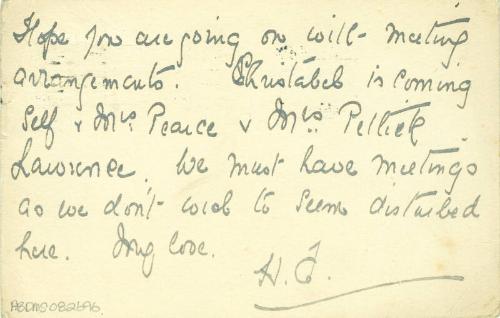 Hope you are going on with meeting
arrangements. Christabel is coming
Self & Mrs Pearce & Mrs. Pethick
Lawrence. We must have meetings
as we don't wish to seem disturbed
here. My love.
H. F.
ABDMS082696